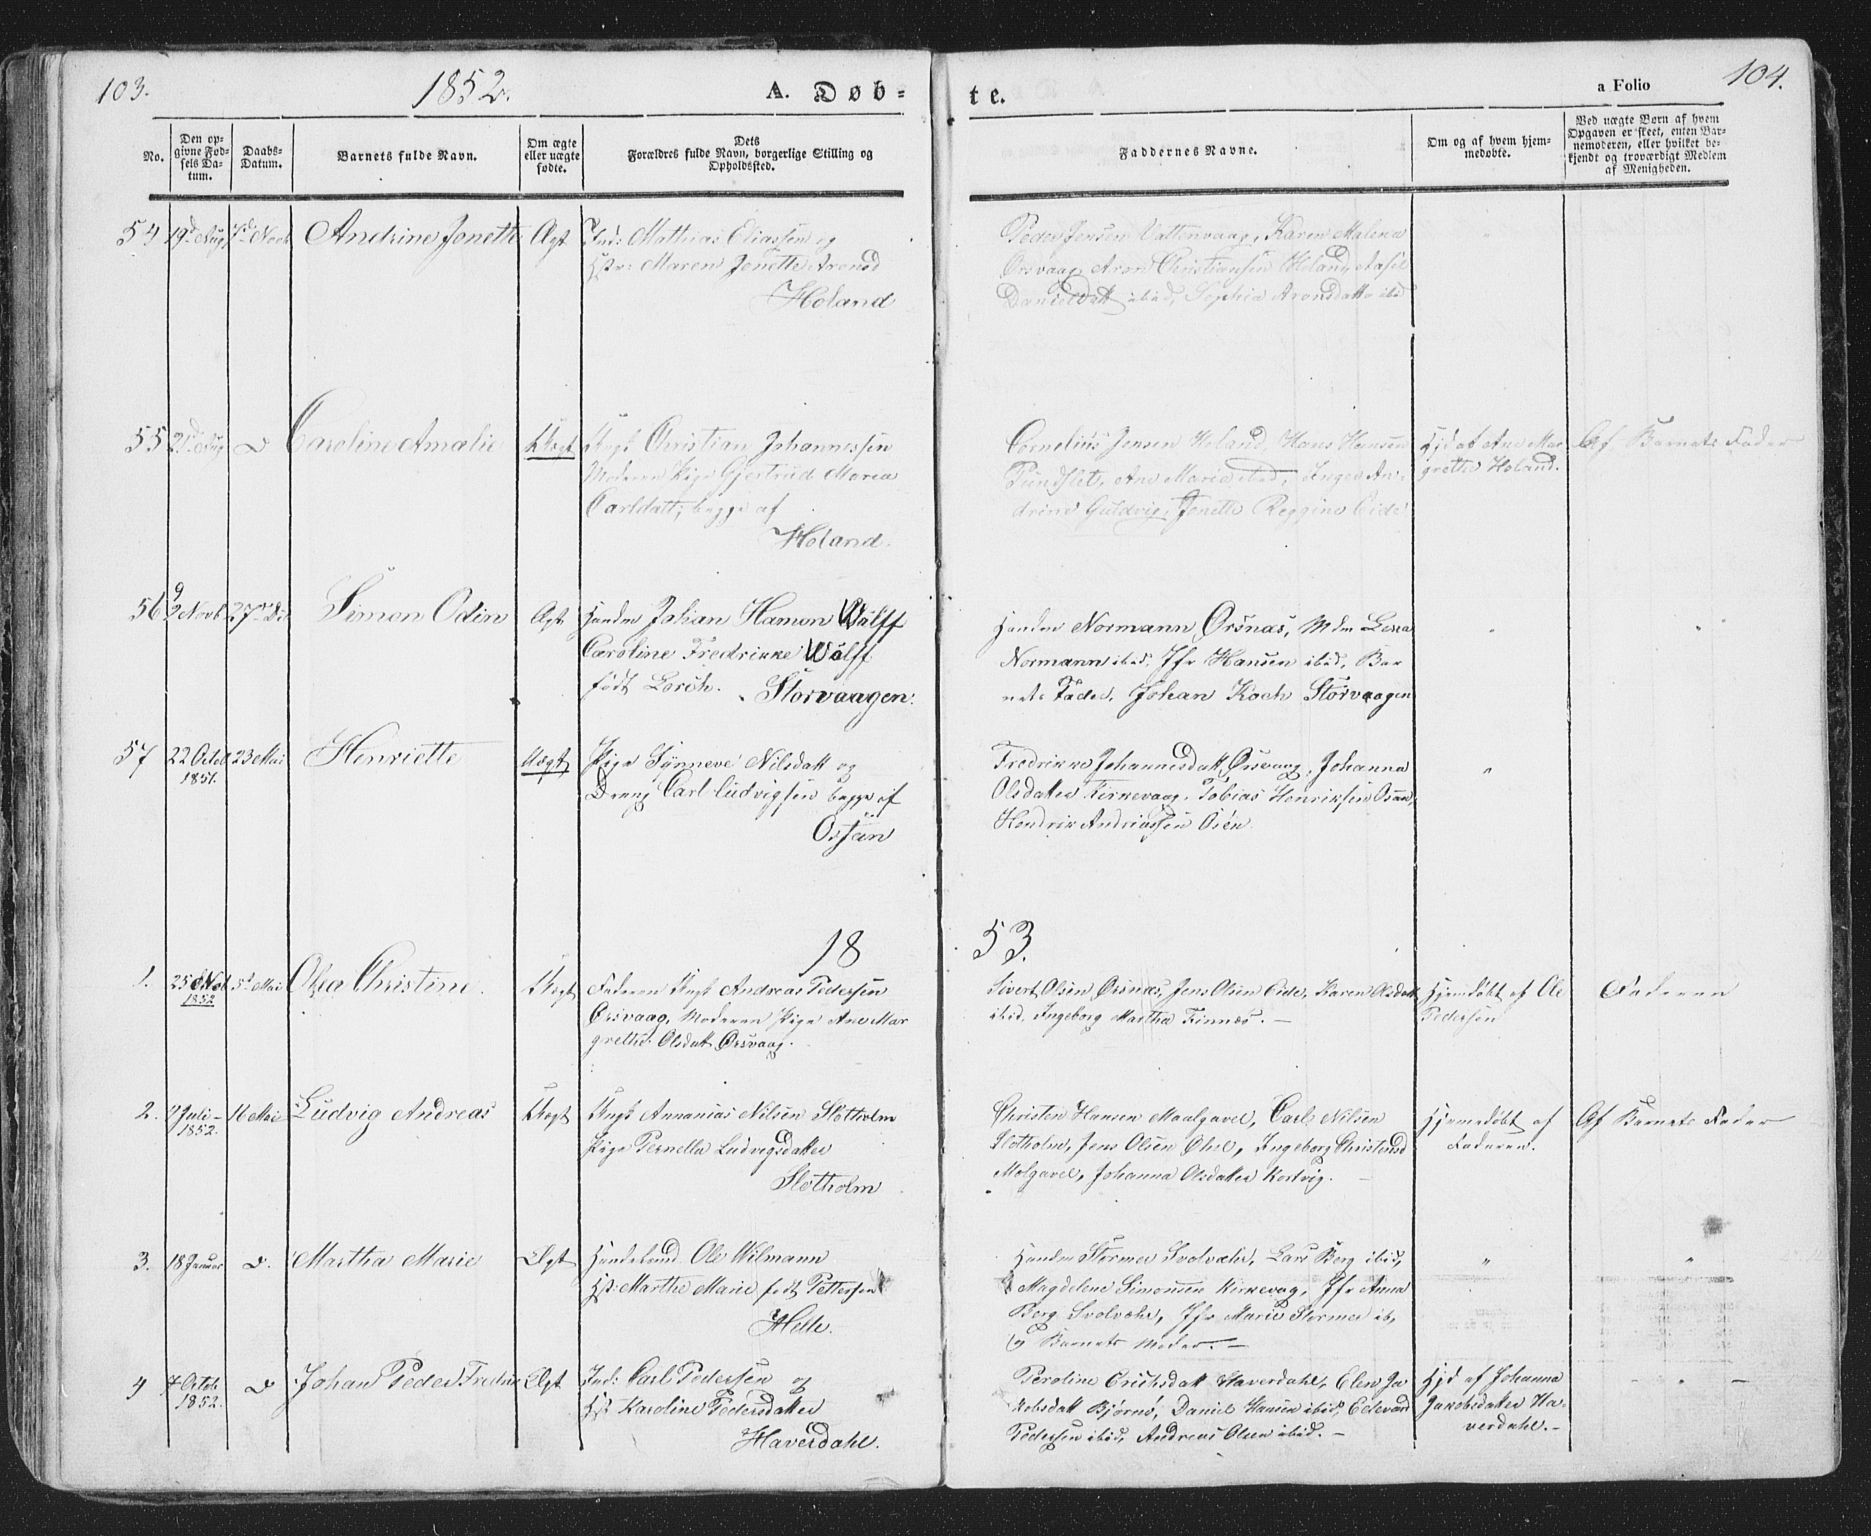 103.
1852.
A. Døb-
te.
a Folio
104.
No.
Den op-
givne Fød-
sels Da-
tum.
Daabs-
Datum.
Barnets fulde Navn.
Om ægte
eller uægte
fødte.
Dets
Forældres fulde Navn, borgerlige Stilling og
Opholdssted.
Faddernes Navne.
Om og af hvem hjem-
medøbte.
Ved uægte Børn af hvem
Opgaven er skeet, enten Bar-
nemoderen, eller hvilket be-
kjendt og troværdigt Medlem
af Menigheden.
54 19d Aug 7d Novb Andrine Jonette Ægt Ind: Mathias Eliassen og
Hstr: Maren Jonette Aronsd
Holand
Peder Jensen Vattenvaag, Karen Malena
Ørsvaag, Aron Christiansen Holand,
Danielsdatt ibid, Sophia Aronsdatte ibid
55 21d Aug D Caroline Amalie Uægt Ungk Christian Johannessen
Moderen Pige Gjertrud Maria
Carlsdatt, begge af
Holand.
Cornelius Jensen Holand, Hans Hansen
Pundslet, Ane Maria ibid, Inger An-
drine Guldvig, Jonette Reggine Eide
Hjd af Ane Mar
grethe Holand.
Af Barnets Fader
56 9 Novb 27 Simon Odin Ægt Handm Johan Hamon Wolff
Caroline Fredrikke Wolff
født Lorch. Storvaagen.
Handm Normann Ørsnæs, Mdm
Normann ibid, Jfr Hansen ibid, Bar
nets Fader, Johan Koch Storvaagen
57 22 Octob
1851. 23 Mai Henriette Uægt Pige Synneve Nilsdatt og
Dreng Carl Ludvigsen begge af
Ossan
Fredrikke Johannesdatt Ørsvaag, Johanna
Olsdatter Kirkevaag, Tobias Henriksen Osan,
Hendrik Andriassen Osen.
18
53.
1. 25d Nov
1852 5d Mai Olea Christine. Uægt Faderen Ungk Andreas Pedersen
Ørsvaag, Moderen Pige Ane Mar
grethe Olsdatt Ørsvaag.
Sivert Olsen Ørsnæs, Jens Olsen Eide, Karen Olsdatt
ibid, Ingeborg Martha Finnæs. —
Hjemdøbt af Ole
Pedersen
Faderen
2. 7 Juli
1852. 16 Mai Ludvig Andreas Uægt Ungk Annanias Nilsen Slotholm
Pige Pernella Ludvigsdatter
Slotholm
Christen Hansen Maalgavel, Carl Nilsen
Slotholm, Jens Olsen, Ingeborg Christensd
Molgavel, Johanna Olsdatter
Hjemedøbt af
Faderen.
Af Barnets Fader
3. 18 Januar D. Martha Marie Ægt Handelsmd Ole Wilmann
Hst: Marthe Marie født Pettersen
Helle.
Handm Stormer Svolvær, Lars Berg ibid,
Magdelene Simonsen Kirkevaag, Jfr Anna
Berg Svolvær, Jfr Marie Stormer ib,
og Barnets Moder. —
4 Octob
1852. D Johan Peder Fredrik Ægt Ind: Carl Pedersen og
Hst Karoline Pedersdatter
Haversdahl.
Peroline Erichsdatt Haverdahl, Elen Ja
kobsdatt Bjørnø, Daniel Hansen ibid, Edevard
Pedersen ibid, Andreas Olsen ibid. —
Hjd af Johanna
Jakobsdatter Ha-
verdahl. —